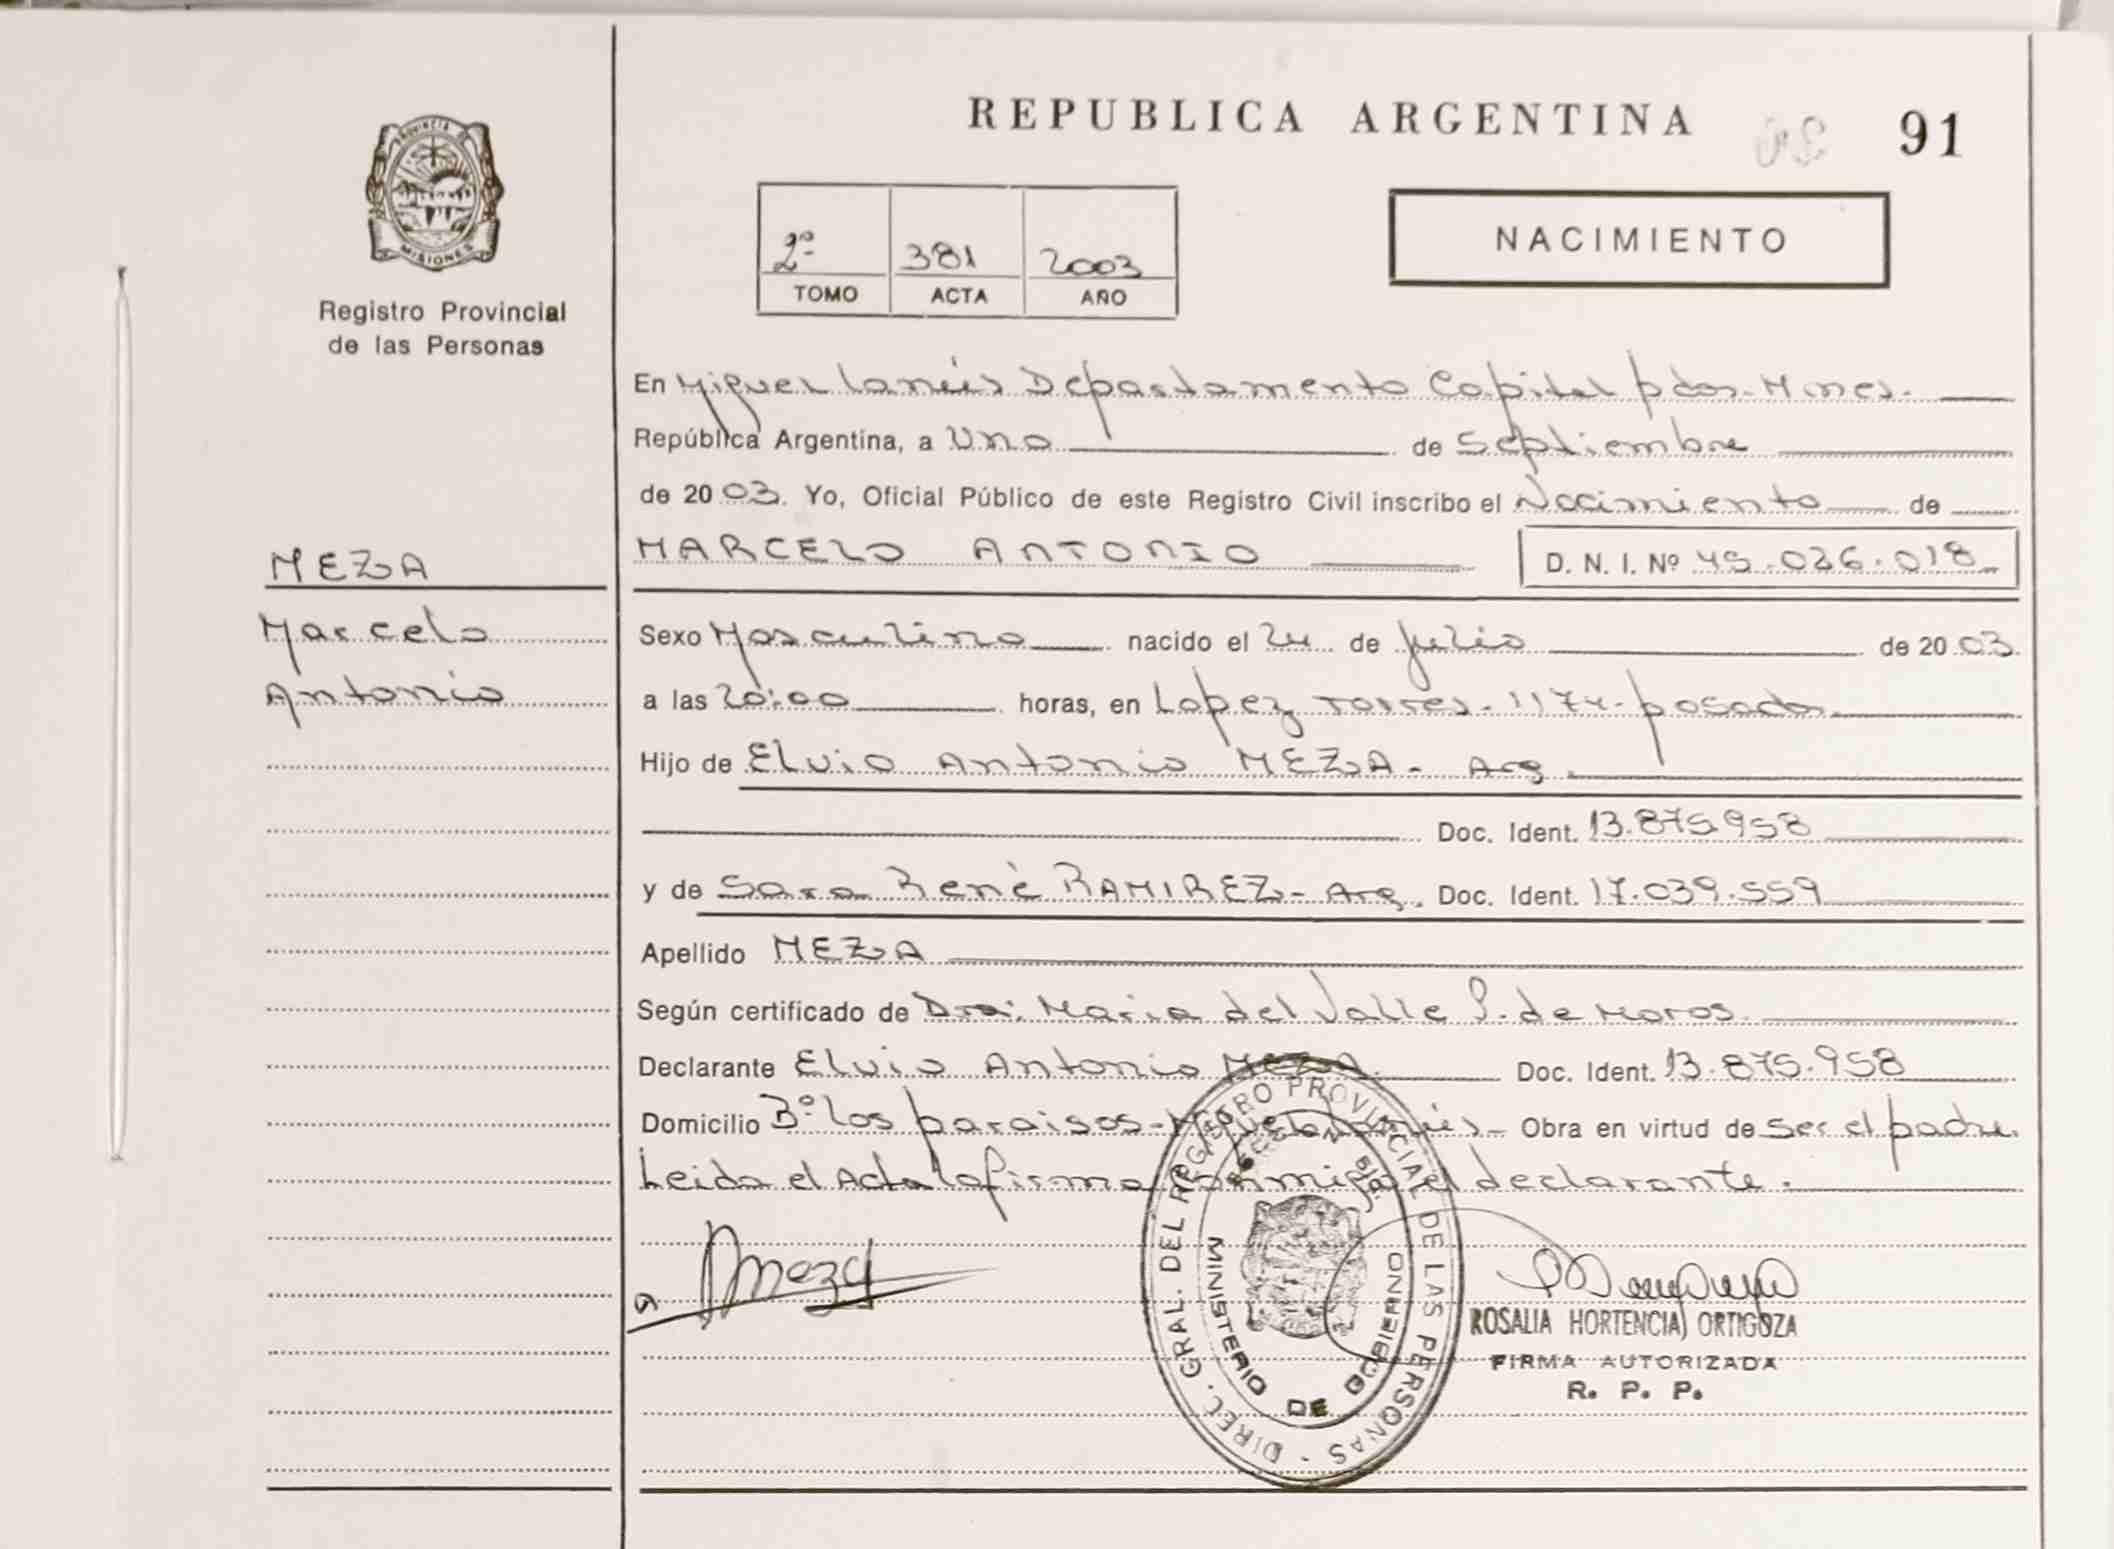 REPUBLICA ARGENTINA
91
PROVINCIA DE
MISIONES
Registro Provincial
de las Personas
2º 381 2003
TOMO ACTA AÑO
NACIMIENTO
En Miguel Lanús Departamento Capital pdas. Mnes.
República Argentina, a Uno de Septiembre
de 2003. Yo, Oficial Público de este Registro Civil inscribo el Nacimiento de
MARCELO ANTONIO D. N. I. Nº 45.026.018
MEZA
Marcelo
Antonio
Sexo Masculino nacido el 24 de Julio de 2003
a las 20:00 horas, en Lopez Torres. 1174. posadas
Hijo de Elvio Antonio MEZA - Arg.
Doc. Ident. 13.875958
y de Sara René RAMIREZ - Arg. Doc. Ident. 17.039.559
Apellido MEZA
Según certificado de Dra: Maria del Valle S. de Moros.
Declarante Elvio Antonio MEZA. Doc. Ident. 13.875.958
Domicilio Bº los paraisos - Miguel Lanús - Obra en virtud de ser el padre.
Leida el Acta la firma conmigo el declarante.
Meza
DIREC. GRAL. DEL REGISTRO PROVINCIAL DE LAS PERSONAS
MINISTERIO DE GOBIERNO
ROSALIA HORTENCIA ORTIGOZA
FIRMA AUTORIZADA
R. P. P.